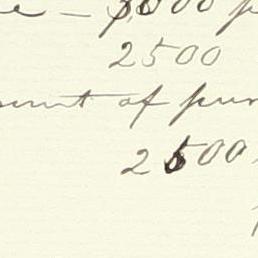 e - 3000 p
2500
ount of pur
2500